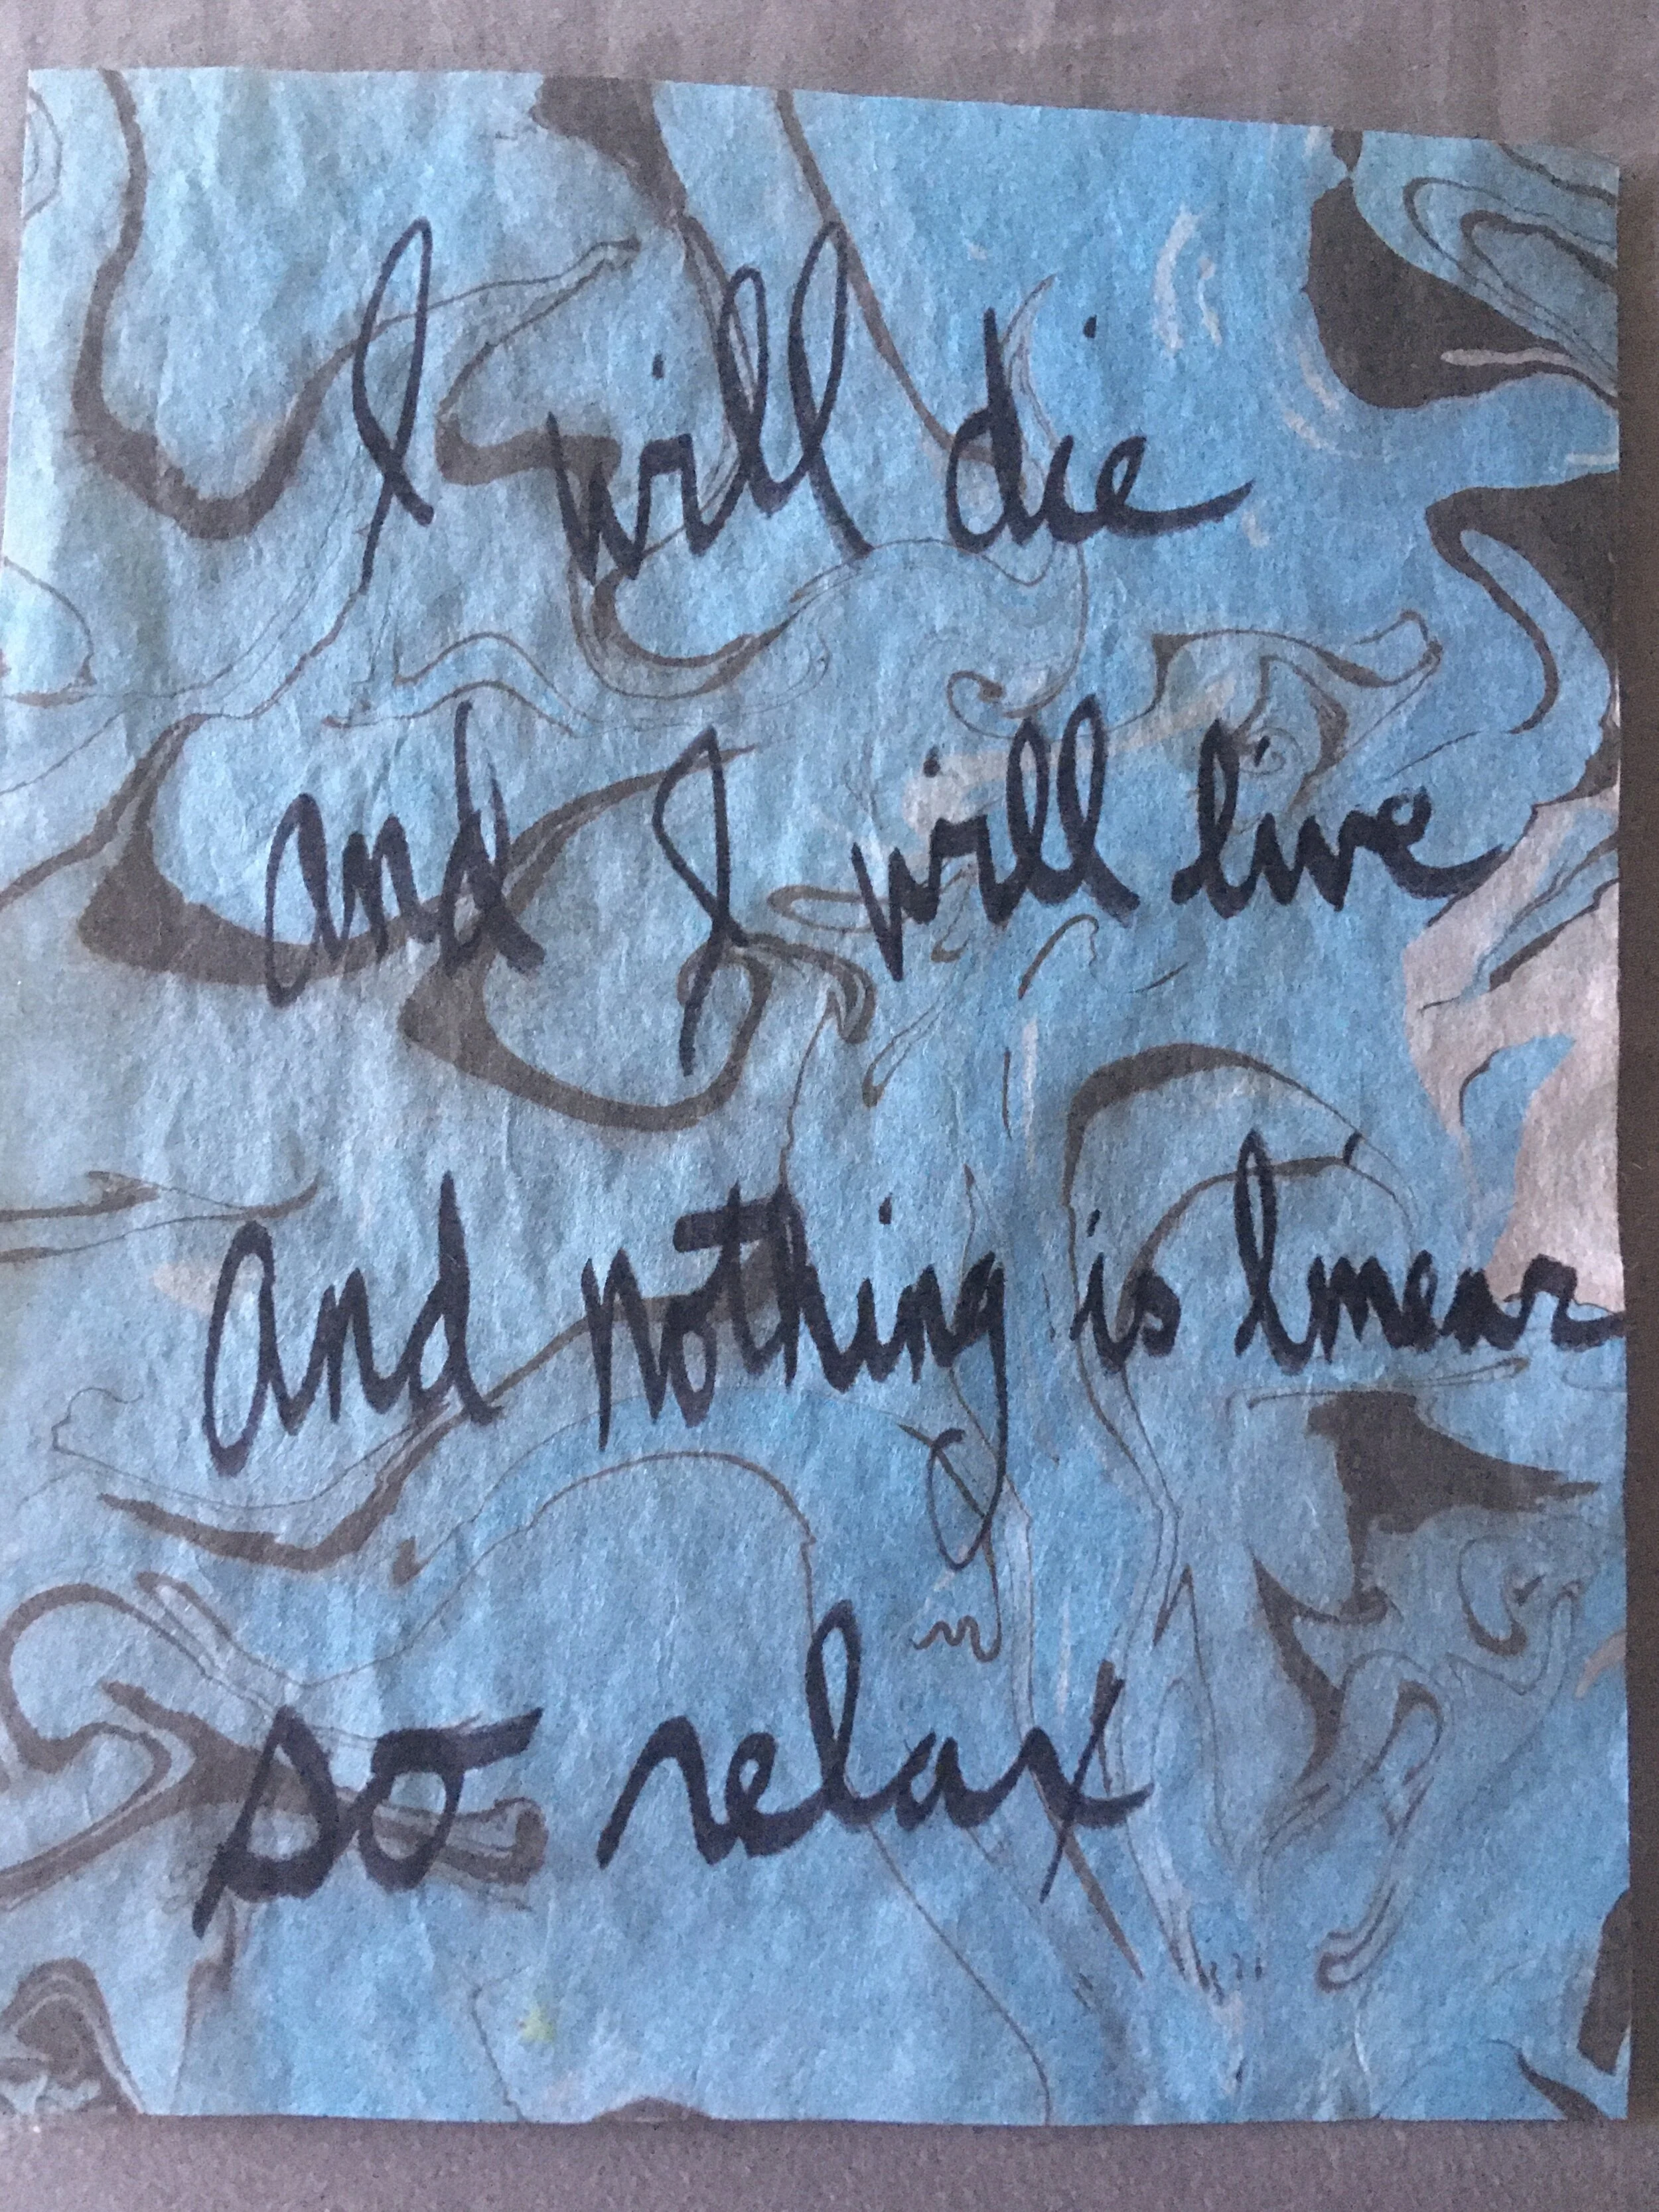 I will die
and I will live
and nothing is linear
so relax